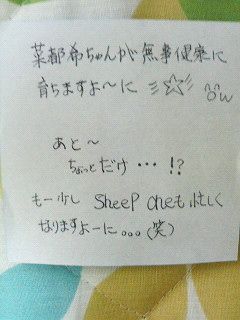 菜都希ちゃんが無事健康に
育ちますよ〜に ☆ ^o^w
あと〜
ちょっとだけ…!?
もー少し Sheep oneも忙しく
なりますよーに。。。(笑)